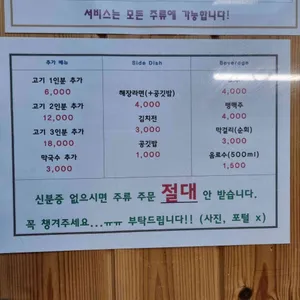 서비스는 모든 주류에 가능합니다!
추가 메뉴
고기 1인분 추가
6,000
고기 2인분 추가
12,000
고기 3인분 추가
18,000
막국수 추가
3,000
Side Dish
해장라면(+공깃밥)
4,000
김치전
3,000
공깃밥
1,000
Beverage
4,000
생맥주
4,000
막걸리(순회)
3,000
음료수(500ml)
1,500
신분증 없으시면 주류 주문 절대 안 받습니다.
꼭 챙겨주세요...ㅠㅠ 부탁드립니다!! (사진, 포털 x)